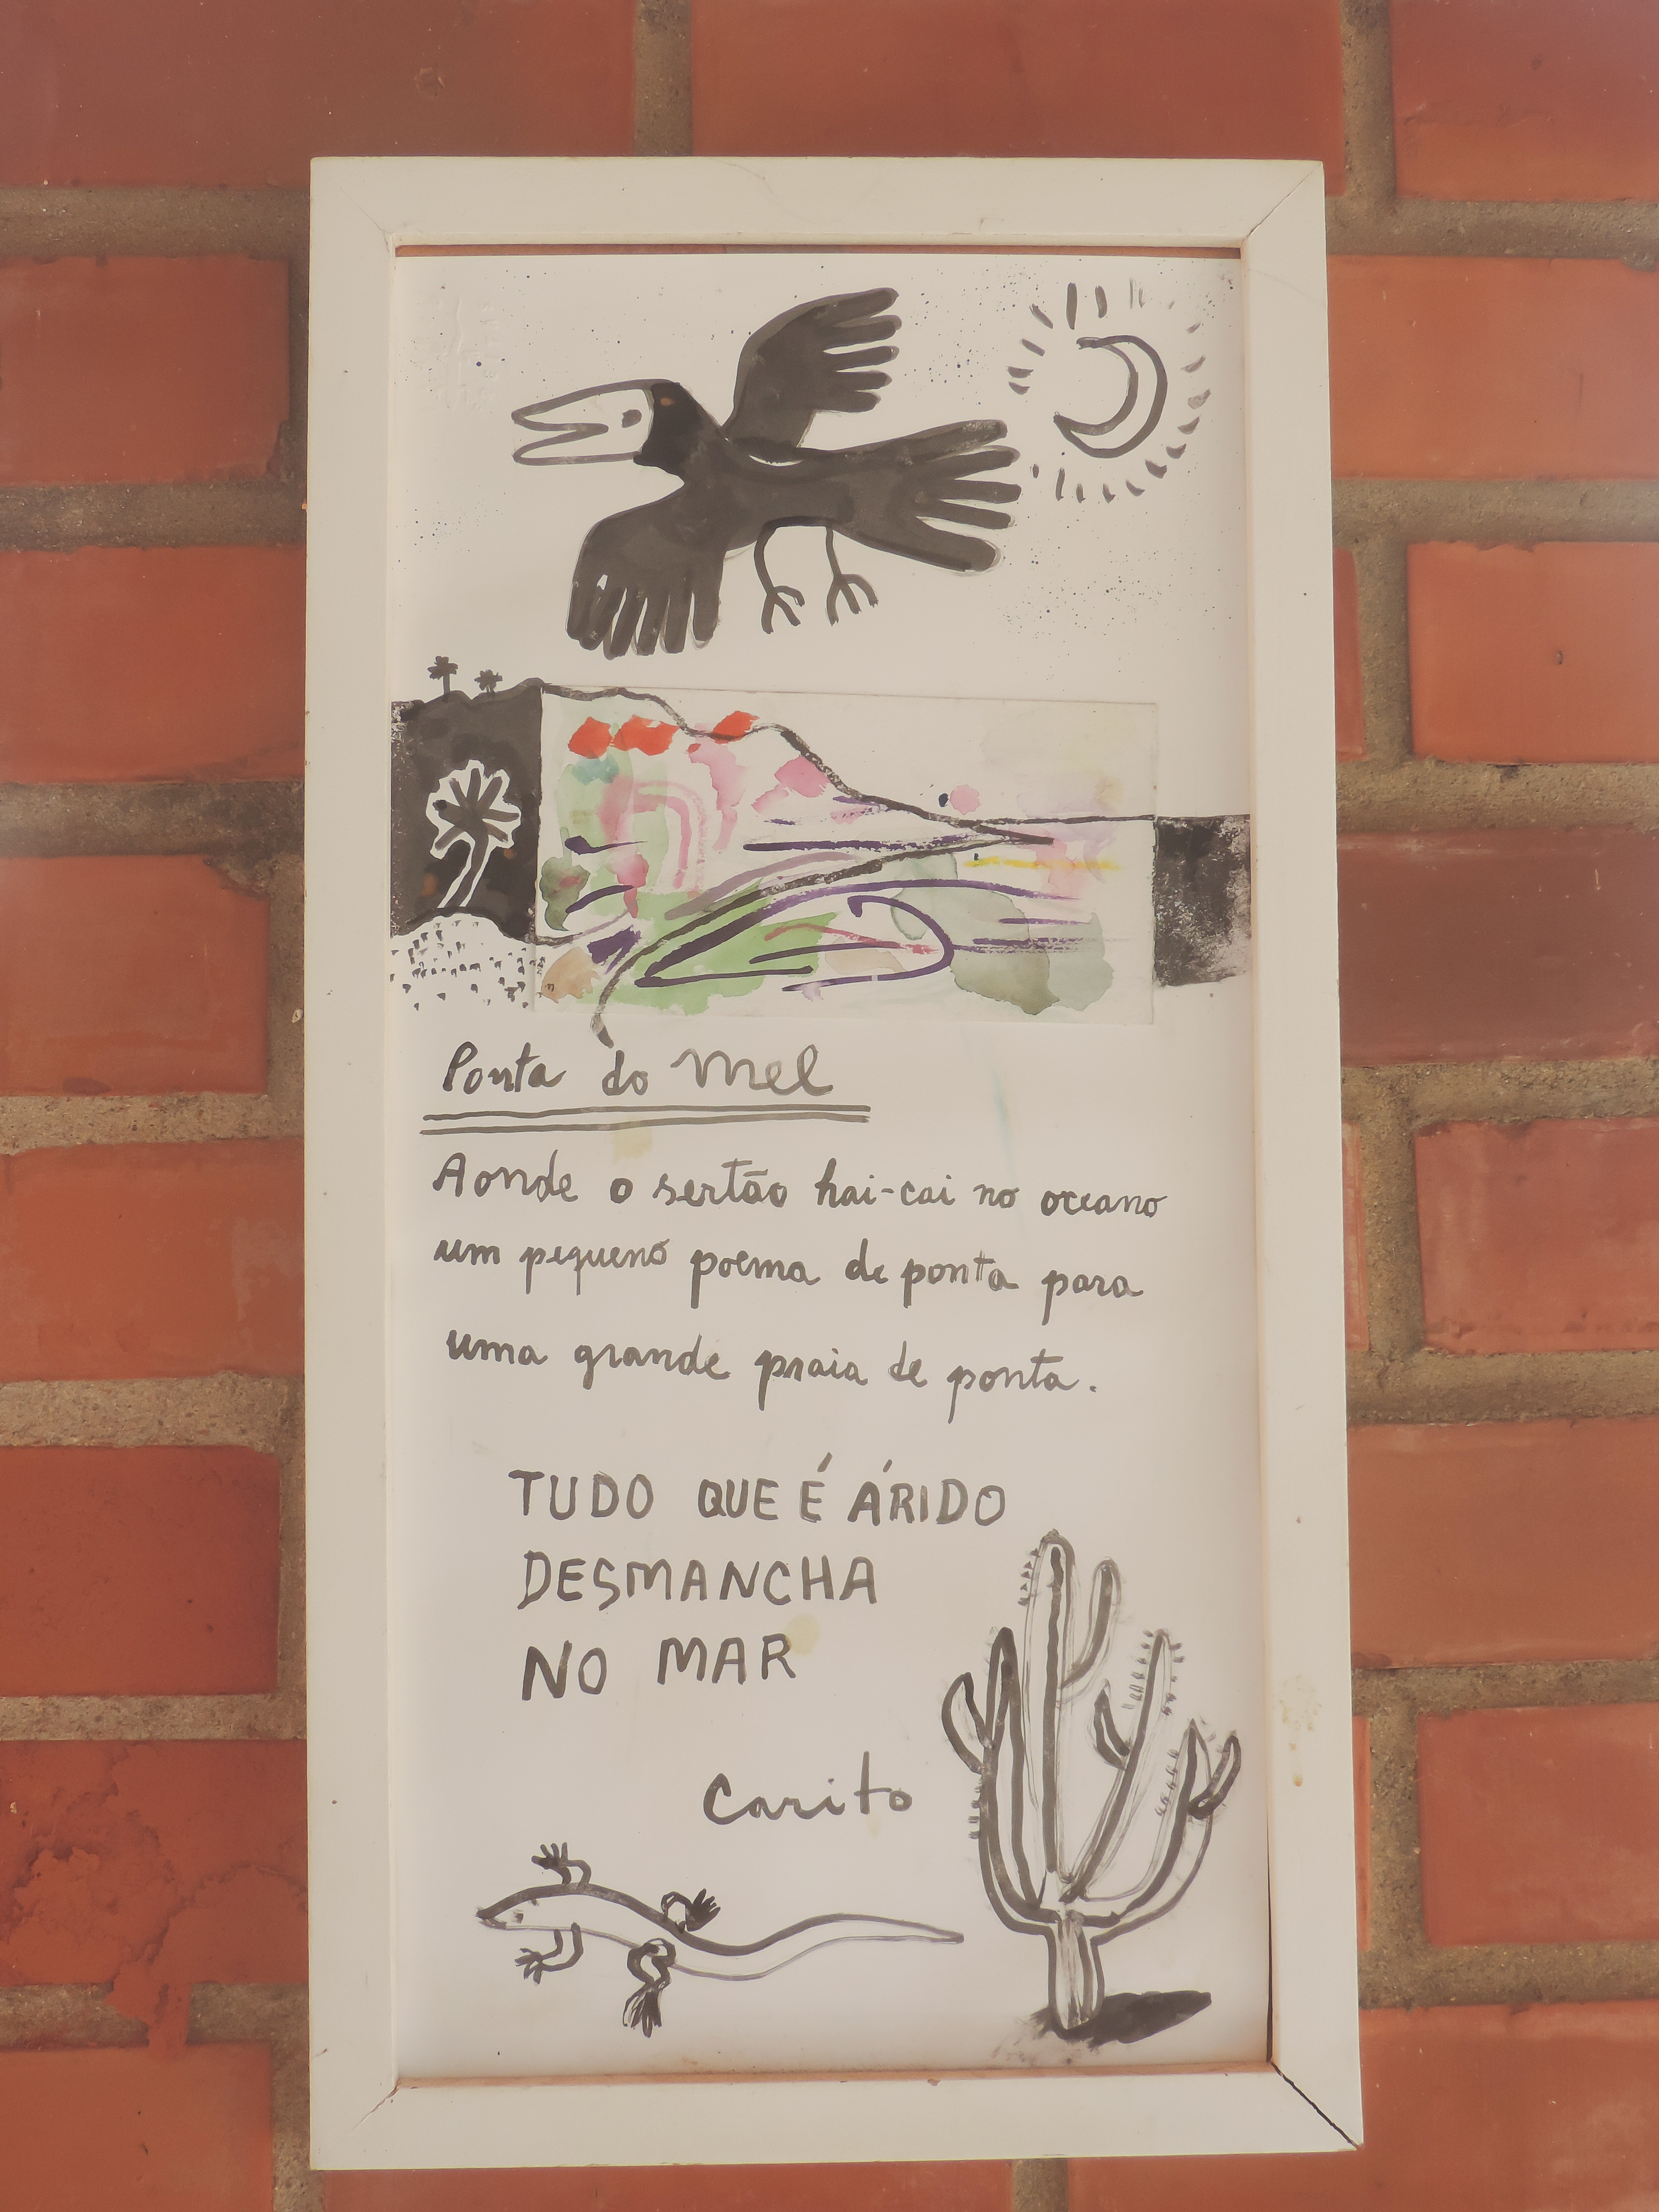 Ponta do Mel
Aonde o sertão hai-cai no oceano
um pequeno poema de ponta para
uma grande praia de ponta.
TUDO QUE É ÁRIDO
DESMANCHA
NO MAR
Carito